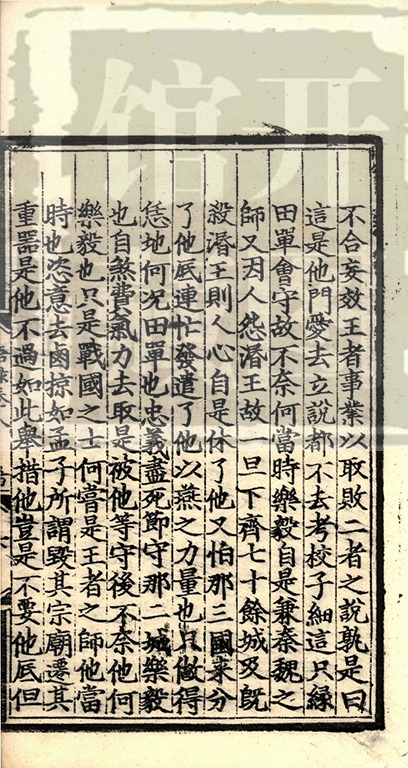 不合妄效王者事業以取敗二者之說孰是曰
這是他門愛去立說都不去考校子細這只緣
田單會守故不奈何當時樂毅自是兼秦魏之
師又因人怨湣王故一旦下齊七十餘城及旣
殺湣王則人心自是休了他又怕那三國來分
了他底連忙發遣了他以燕之力量也只做得
恁地何况田單也忠義盡死節守那二城樂毅
也自煞費氣力去取是被他等守後不奈他何
樂毅也只是戰國之士何嘗是王者之師他當
時也恣意去鹵掠如孟子所謂毀其宗廟遷其
重器是他不過如此舉措他豈是不要他底但